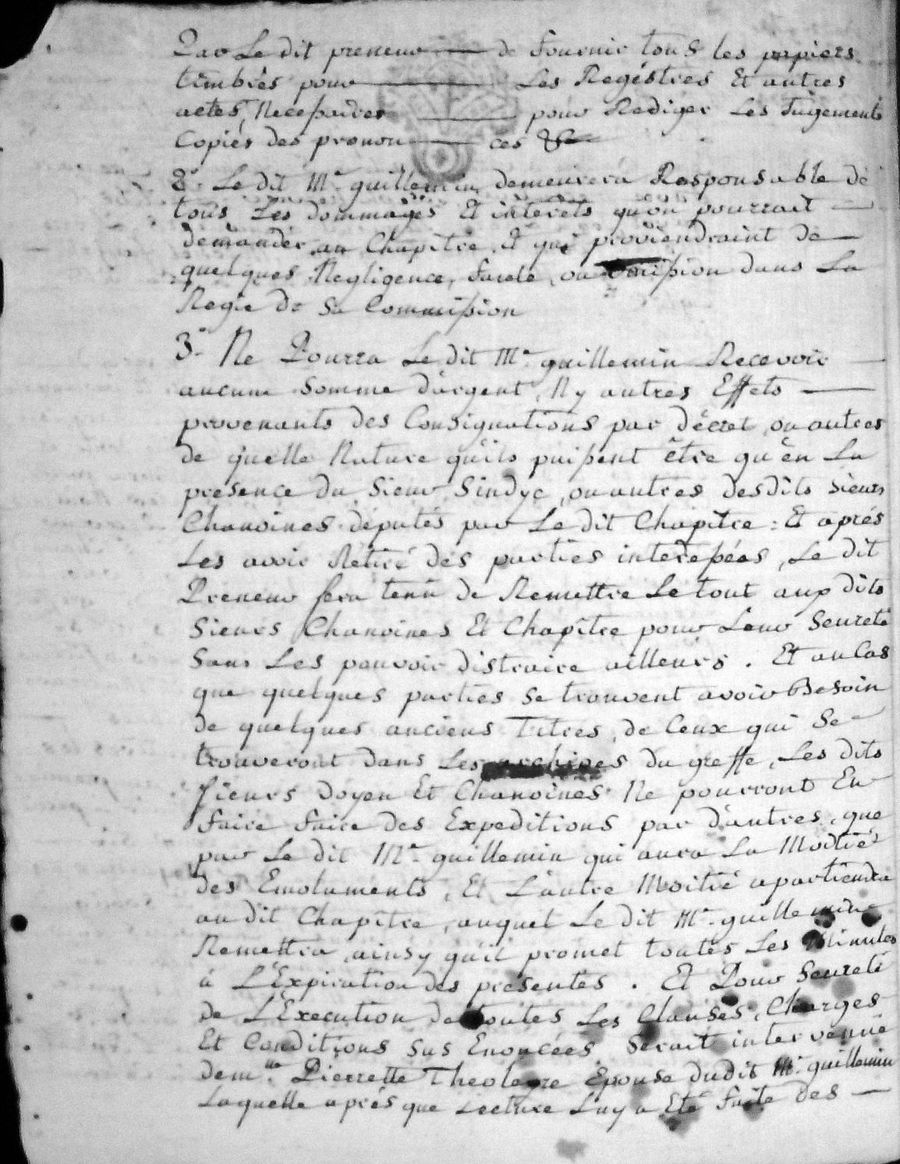 Par Le dit preneur — de fournir tous les papiers
timbrés pour — Les Regéstres Et autres
actes, Necessaires — pour Rediger Les Jugements
Copiés des pronon — ces &c
2° Le dit Mr guillemin demeurera Responsable de
tous Les dommages Et interets qu'on pourrait —
demander au Chapitre, Et qui proviendraint de —
quelques Negligence, faute, ou omission dans La
Regie de Sa Commission
3° Ne Pourra Le dit Mr guillemin Recevoir —
aucune Somme d'argent, Ny autres Effets —
provenants des Consignations par décret, ou autres
de quelle Nature qu'ils puissent être qu'en La
présence du Sieur Sindyc, ou autres desdits Sieurs
Chanoines députés par Le dit Chapitre : Et aprés
Les avoir Retiré des parties interessées, Le dit
Preneur sera tenu de Remettre Le tout aux dits
Sieurs Chanoines Et Chapitre pour Leur Seureté
Sans Les pouvoir distraire ailleurs. Et au Cas
que quelques parties se trouvent avoir Besoin
de quelques anciens Titres, de Ceux qui Se
trouveront dans Les archives du greffe, Les dits
sieurs Doyen Et Chanoines Ne pourront En
faire faire des Expeditions par d'autres, que
par Le dit Mr guillemin qui aura La Moitié
des Emoluments, Et L'autre Moitié apartiendra
au dit Chapitre, auquel Le dit Mr guillemin
Remettra, ainsy qu'il promet toutes Les Minutes
à L'Expiration des présentes. Et Pour Seureté
de L'Execution de toutes Les Clauses, Charges
Et Conditions Sus Enoncées, Serait intervenüe
demlle Pierrette Epouse dudit Mr guillemin
Laquelle aprés que Lecture Luy a Eté faite des —